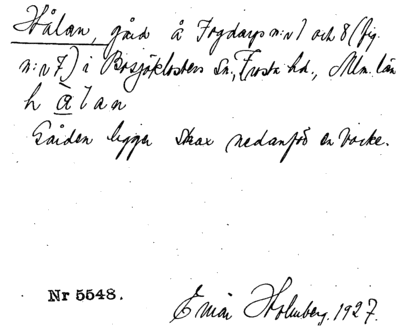 Hålan, gård å Fogdarps n:r 1 och 8 (jfr
n:r 7) i Bosjöklosters Sn., Frosta hd., Mlm. län
h à l a n
Gården ligger strax nedanför en backe.
Nr 5548.
Einar Holmberg. 1927.